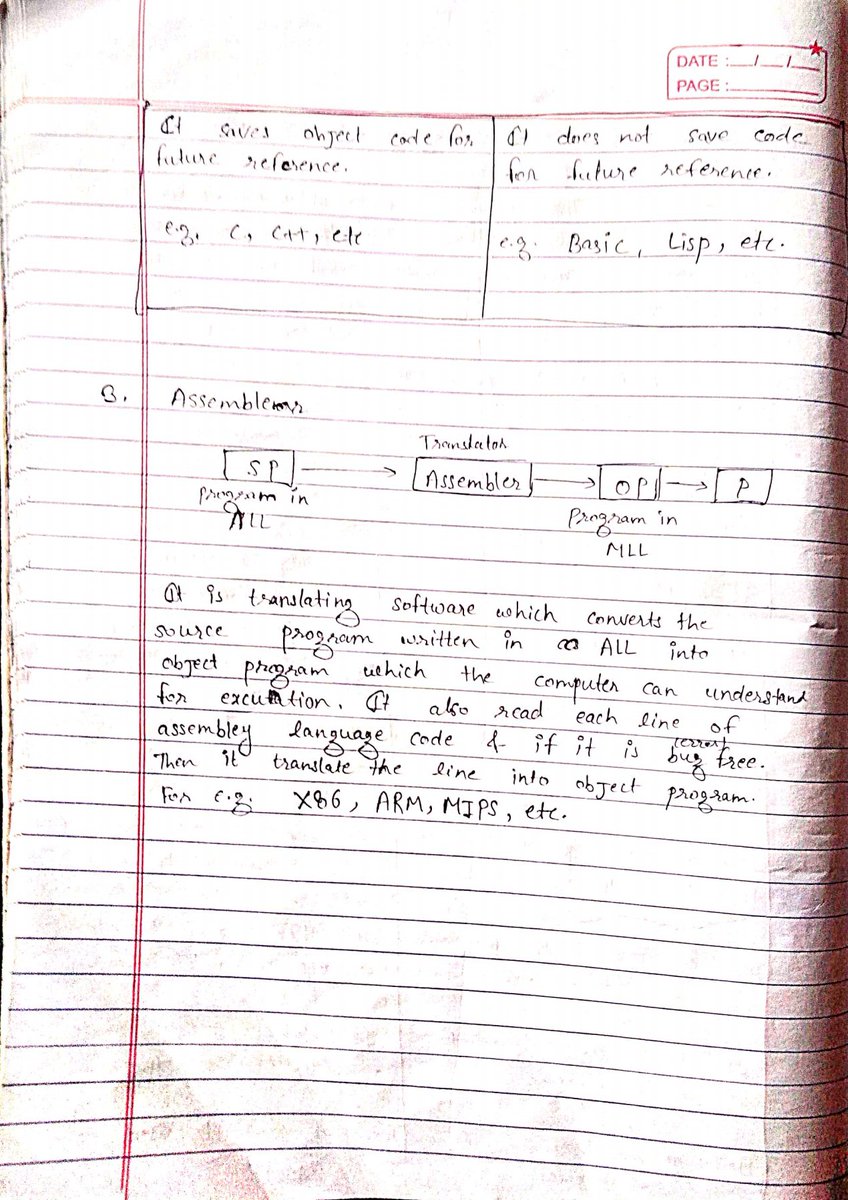 DATE :__/__/__
PAGE :______
It saves object code for
future reference.
e.g. C, C++, etc
It does not save code
for future reference.
e.g. Basic, Lisp, etc.
3. Assembler
Translator
SP → Assembler → OP → P
program in
ALL
Program in
MLL
It is translating software which converts the
source program written in ALL into
object program which the computer can understand
for excution. It also read each line of
(error)
assembley language code & if it is bug free.
Then it translate the line into object program.
For e.g. X86, ARM, MIPS, etc.